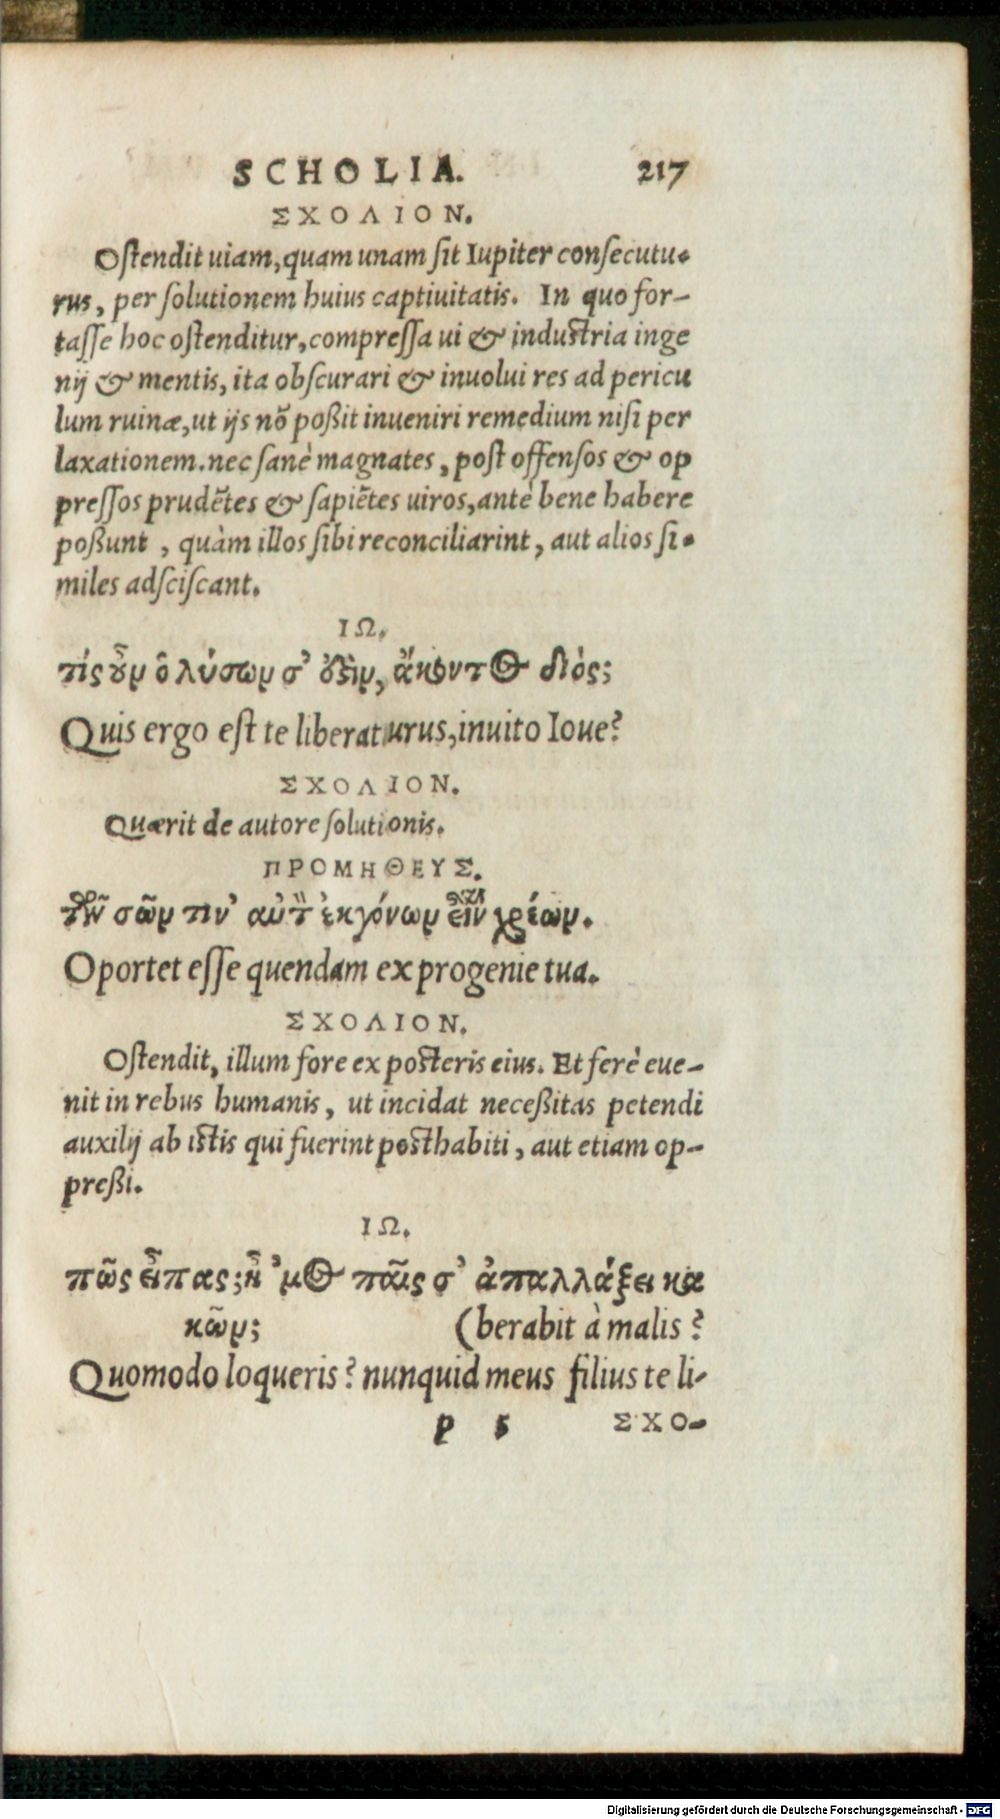 SCHOLIA. 217
ΣΧΟΛΙΟΝ.
Ostendit uiam, quam unam sit Iupiter consecutu-
rus, per solutionem huius captiuitatis. In quo for-
tasse hoc ostenditur, compressa ui & industria inge
nij & mentis, ita obscurari & inuolui res ad pericu
lum ruinæ, ut ijs nõ poßit inueniri remedium nisi per
laxationem. nec sanè magnates, post offensos & op
pressos prudẽtes & sapiẽtes uiros, antè bene habere
poßunt , quàm illos sibi reconciliarint, aut alios si-
miles adsciscant.
ΙΩ.
τίς οὖν ὁ λύσων σ’ ἐστὶν, ἄκοντος Διός;
Quis ergo est te liberaturus, inuito Ioue?
ΣΧΟΛΙΟΝ.
Quærit de autore solutionis.
ΠΡΟΜΗΘΕΥΣ.
τῶν σῶν τιν’ αὐτὸν ἐκγόνων εἶναι χρέων.
Oportet esse quendam ex progenie tua.
ΣΧΟΛΙΟΝ.
Ostendit, illum fore ex posteris eius. Et ferè eue-
nit in rebus humanis, ut incidat neceßitas petendi
auxilij ab istis qui fuerint posthabiti, aut etiam op-
preßi.
ΙΩ.
πῶς εἶπας; ἦ ’μὸς παῖς σ’ ἀπαλλάξει κα
κῶν; (berabit à malis?
Quomodo loqueris? nunquid meus filius te li-
p 5 ΣΧΟ-
Digitalisierung gefördert durch die Deutsche Forschungsgemeinschaft - DFG